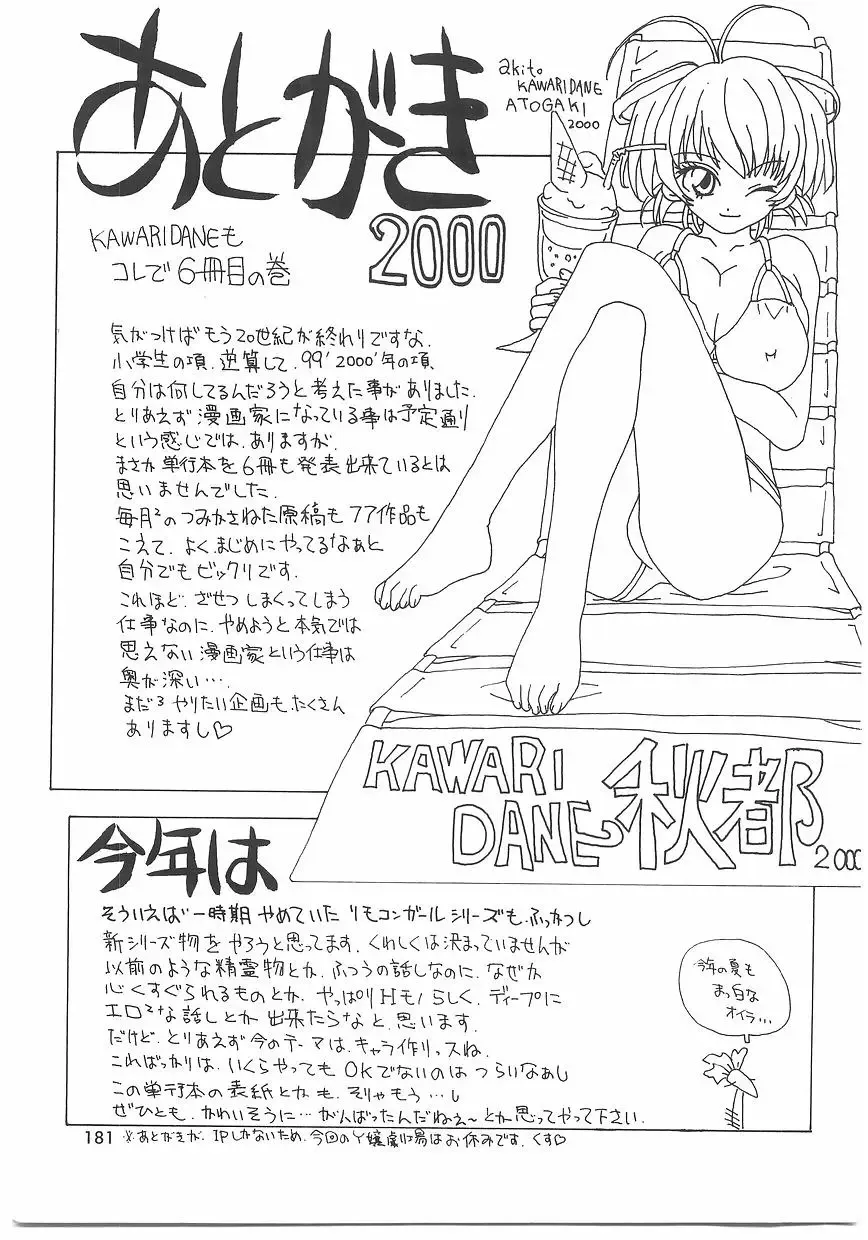 あとがき
2000
akito
KAWARIDANE
ATOGAKI
2000
KAWARIDANEも
コレで6冊目の巻
気がつけばもう20世紀が終わりですな.
小学生の項.逆算して.99'2000'年の項、
自分は何してるんだろうと考えた事がありました.
とりあえず漫画家になっている事は予定通り
という感じでは.ありますが.
まさか単行本を6冊も発表出来ているとは
思いませんでした.
毎月²のつみかさねた原稿も77作品も
こえて.よくまじめにやってるなぁと
自分でもビックリです.
これほど.ざせつしまくってしまう
仕事なのに.やめようと本気では
思えない漫画家という仕事は
奥が深い….
まだ³やりたい企画も.たくさん
ありますし♡
KAWARI
DANE 秋都
2000
今年は
そういえば一時期やめていたリモコンガールシリーズも.ふっかつし
新シリーズ物をやろうと思ってます.くわしくは決まっていませんが
以前のような精霊物とか.ふつうの話しなのに.なぜか
心くすぐられるものとか.やっぱりHモノらしく.ディープに
エロ²な話しとか出来たらなと.思います.
だけど.とりあえず今のテーマは.キャラ作りっスね.
こればっかりは.いくらやってもOKでないのはつらいなぁし
この単行本の表紙とかも.そりゃもう…し
ぜひとも.かわいそうに…がんばったんだねぇ~とか思ってやって下さい.
今年の夏も
まっ白な
オイラ…
181 ※あとがきが.1Pしかないため.今回のY嬢劇場はお休みです.くす♡